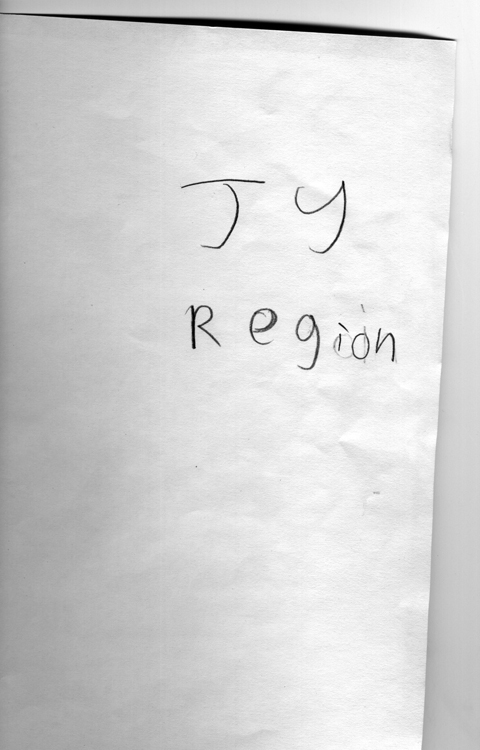 J y
Region